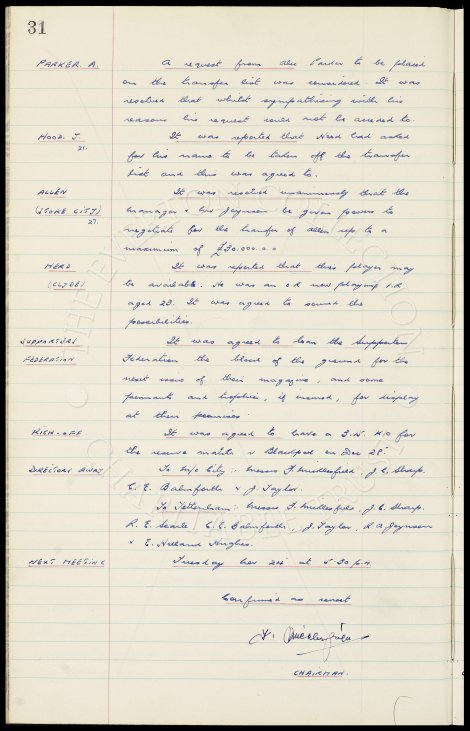 31
PARKER A. A request from Alec Parker to be placed
on the transfer list was considered. It was
resolved that whilst sympathising with his
reasons his request could not be acceded to.
HOOD. J. It was reported that Hood had asked
21.
for his name to be taken off the transfer
list and this was agreed to.
ALLEN It was resolved unanimously that the
(STOKE CITY) manager & Mr Joynson be given powers to
27.
negotiate for the transfer of Allen up to a
maximum of £30.000.0.0
HERD It was reported that this player may
(CLYDE) be available. He was an O.R now playing I.R.
aged 23. It was agreed to sound the
possibilities.
SUPPORTERS It was agreed to loan the Supporters
FEDERATION Federation the block of the ground for the
next issue of their magazine, and some
pennants and trophies, if insured, for display
at their premises.
KICK-OFF It was agreed to have a 3.15. K/O for
the reserve match v Blackpool on Dec 28th
DIRECTORS AWAY To M/c City: Messrs F. Micklesfield, J.C. Sharp,
C. E. Balmforth & J. Taylor.
To Tottenham: Messrs F. Micklesfield, J.C. Sharp.
R. E. Searle, C. E. Balmforth, J. Taylor, R.A. Joynson
& E. Holland Hughes.
NEXT MEETING Tuesday Dec 24th at 5-30 p.m.
Confirmed as correct
F.
CHAIRMAN.
THE EVERTON COLLECTION
CHARITABLE TRUST